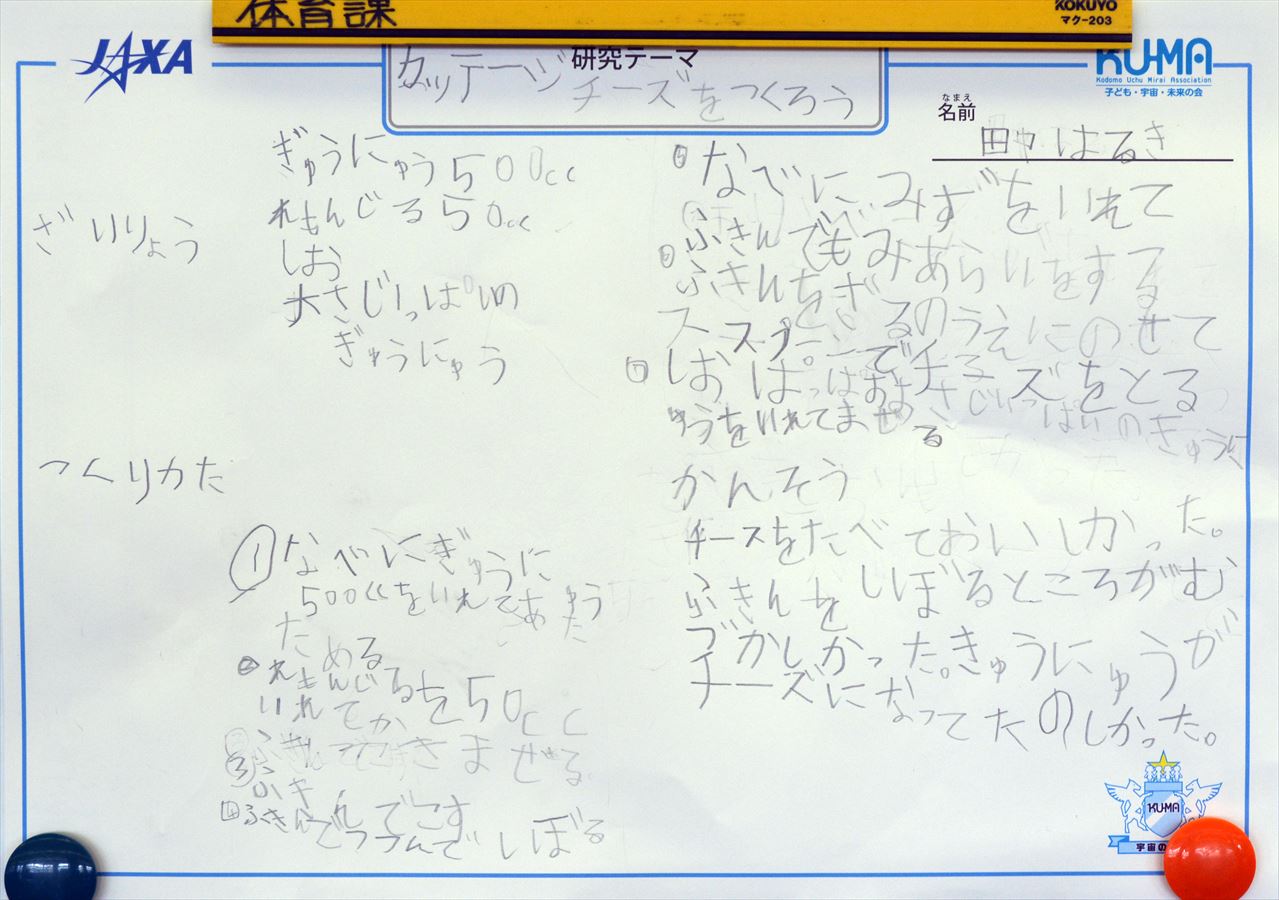 体育課
KOKUYO
マク-203
JAXA
研究テーマ
カッテージチーズをつくろう
KU-MA
Kodomo Uchu Mirai Association
子ども・宇宙・未来の会
なまえ
名前
田中 はるき
ざいりょう
ぎゅうにゅう500cc
れもんじる50cc
しお
大さじいっぱいの
ぎゅうにゅう
つくりかた
①なべにぎゅうに
ゅう
500ccをいれてあた
ため​る
②れもんじるを50cc
いれてか
きまぜる
③ふき
んでこす
④ふきんでつつんでしぼる
⑤なべにみずをいれて
ふきんでもみあらいをする
⑥ふきんをざるのうえにのせて
スプーンでチーズをとる
⑦しお
さじいっぱいのぎゅうに
ゅうをいれてまぜる
かんそう
チースをたべておいしかった。
ふきんをしぼるところがむ
ずかしかった。きゅうにゅうが
チーズになってたのしかった。
KU-MA
宇宙の